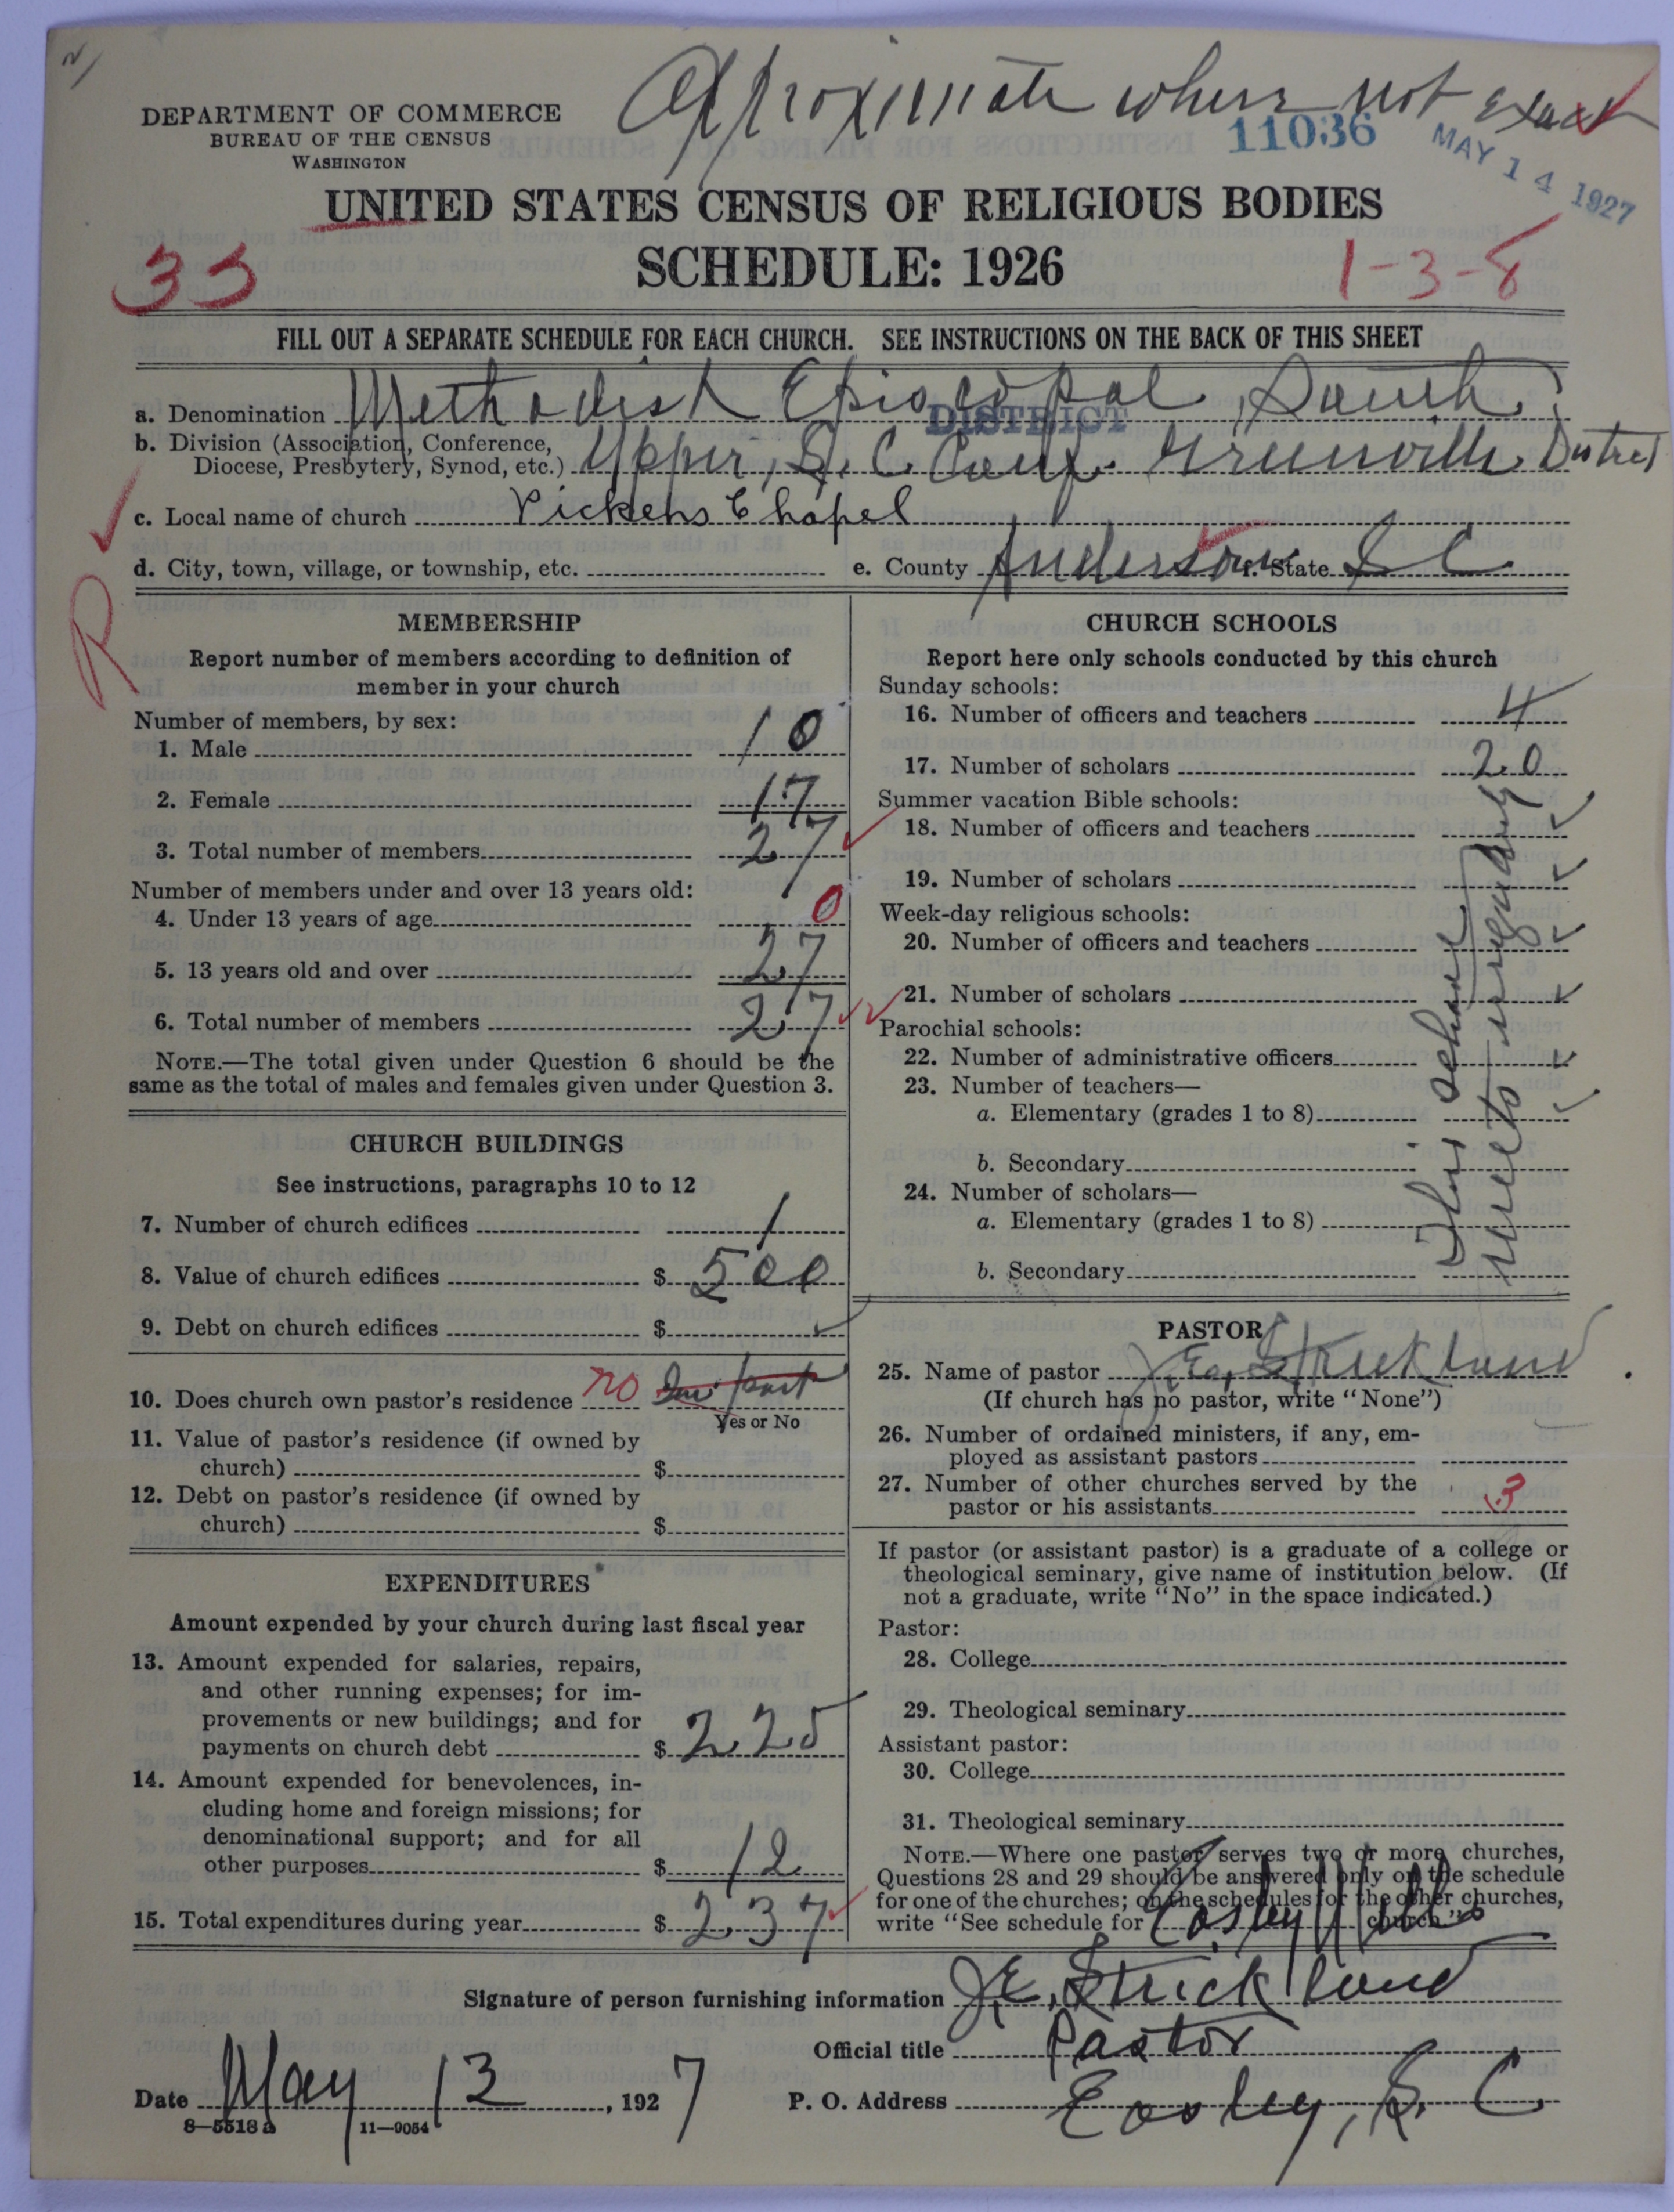 Approximate where not exact
DEPARTMENT OF COMMERCE
BUREAU OF THE CENSUS
WASHINGTON
11036
MAY 14 1927
UNITED STATES CENSUS OF RELIGIOUS BODIES
SCHEDULE: 1926
33
1-3-8
FILL OUT A SEPARATE SCHEDULE FOR EACH CHURCH. SEE INSTRUCTIONS ON THE BACK OF THIS SHEET
a. Denomination Methodist Episcopal, South
DISTRICT
b. Division (Association, Conference,
Diocese, Presbytery, Synod, etc.) Upper, S. C. Conf. Greenville District
c. Local name of church Pickens Chapel
d. City, town, village, or township, etc. e. County Anderson f. State S C
R
MEMBERSHIP
Report number of members according to definition of
member in your church
Number of members, by sex:
1. Male 10
2. Female 17
3. Total number of members 27
Number of members under and over 13 years old:
4. Under 13 years of age 0
5. 13 years old and over 27
6. Total number of members 27
NOTE.—The total given under Question 6 should be the
same as the total of males and females given under Question 3.
CHURCH BUILDINGS
See instructions, paragraphs 10 to 12
7. Number of church edifices 1
8. Value of church edifices $ 500
9. Debt on church edifices $
10. Does church own pastor's residence no In part
Yes or No
11. Value of pastor's residence (if owned by
church) $
12. Debt on pastor's residence (if owned by
church) $
EXPENDITURES
Amount expended by your church during last fiscal year
13. Amount expended for salaries, repairs,
and other running expenses; for im-
provements or new buildings; and for
payments on church debt $ 225
14. Amount expended for benevolences, in-
cluding home and foreign missions; for
denominational support; and for all
other purposes $ 12
15. Total expenditures during year $ 237
CHURCH SCHOOLS
Report here only schools conducted by this church
Sunday schools:
16. Number of officers and teachers 4
17. Number of scholars 20
Summer vacation Bible schools:
18. Number of officers and teachers
19. Number of scholars
Week-day religious schools:
20. Number of officers and teachers
21. Number of scholars
Parochial schools:
22. Number of administrative officers
23. Number of teachers—
a. Elementary (grades 1 to 8)
b. Secondary
24. Number of scholars—
a. Elementary (grades 1 to 8)
b. Secondary
This school
meets
PASTOR
25. Name of pastor J. E. Strickland
(If church has no pastor, write "None")
26. Number of ordained ministers, if any, em-
ployed as assistant pastors
27. Number of other churches served by the
pastor or his assistants 3
If pastor (or assistant pastor) is a graduate of a college or
theological seminary, give name of institution below. (If
not a graduate, write "No" in the space indicated.)
Pastor:
28. College
29. Theological seminary
Assistant pastor:
30. College
31. Theological seminary
NOTE.—Where one pastor serves two or more churches,
Questions 28 and 29 should be answered only on the schedule
for one of the churches; on the schedules for the other churches,
write "See schedule for Easley Mills church"
Signature of person furnishing information J. E. Strickland
Official title Pastor
Date May 13, 1927 P. O. Address Easley, S. C.
8—5518 a 11—9054